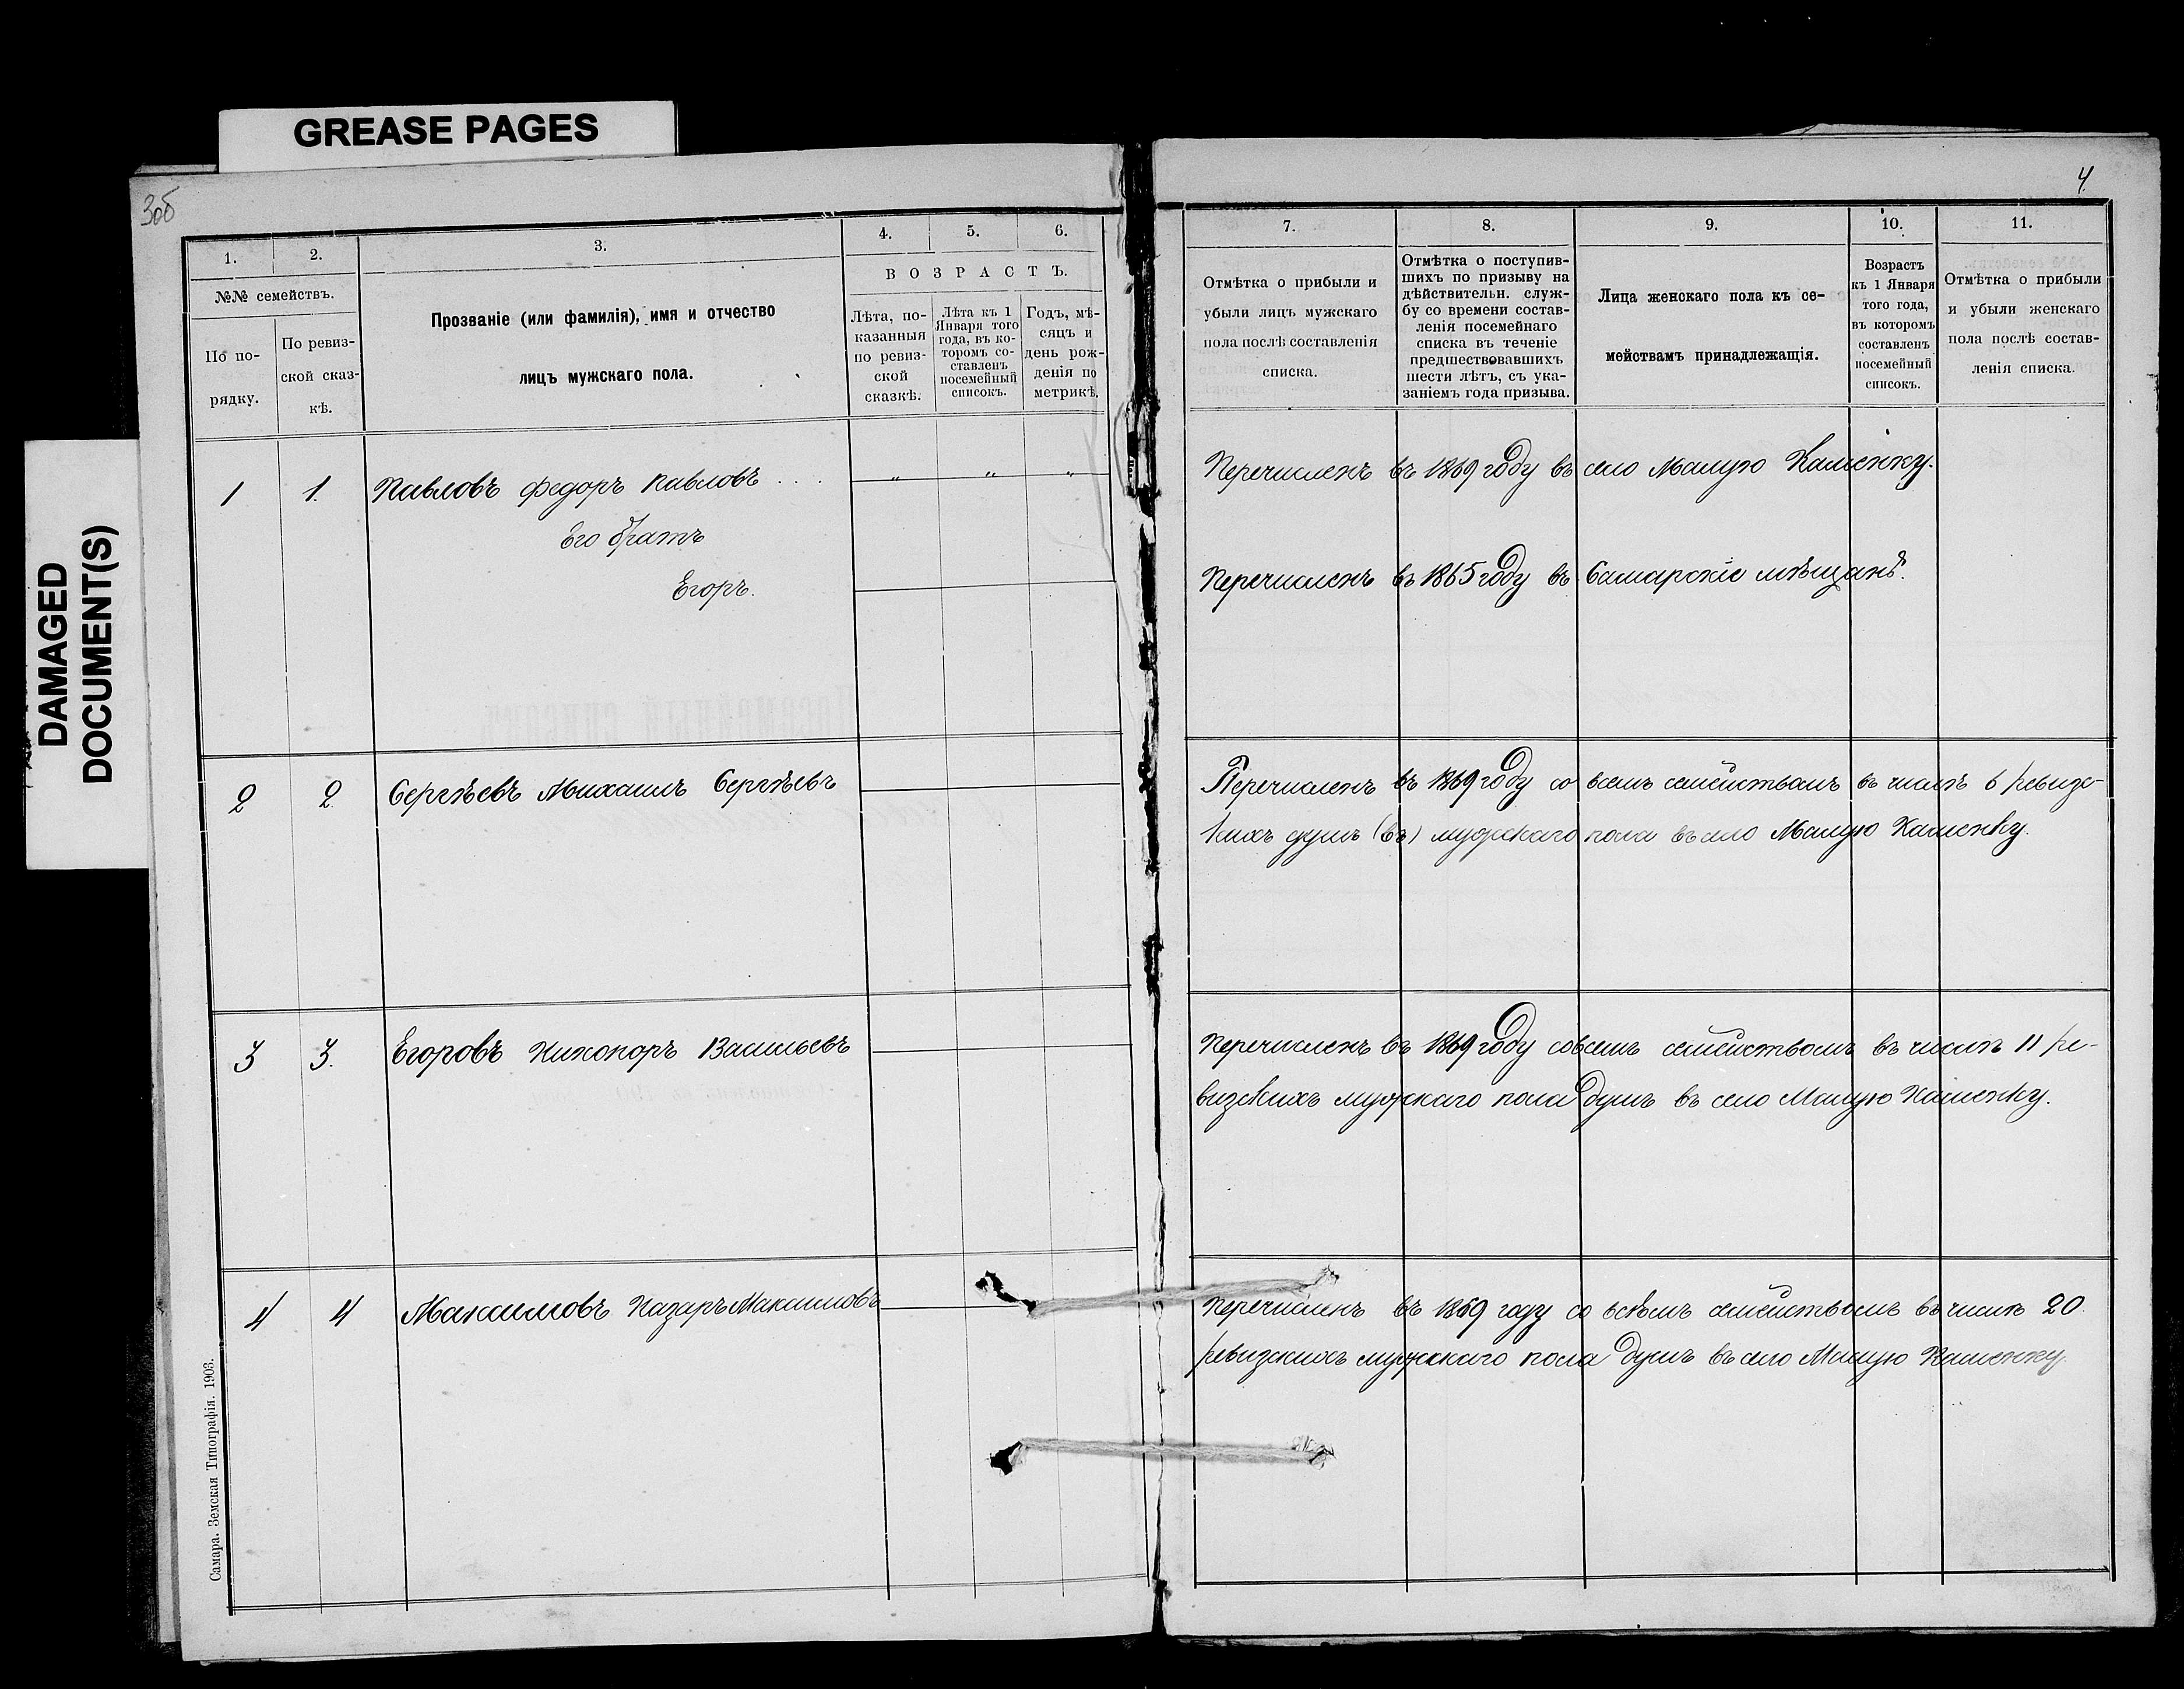 GREASE PAGES
DAMAGED
DOCUMENT(S)
3об
4
1.
2.
3.
4.
5.
6.
№№ семействъ.
По по-
рядку.
По ревиз-
ской сказ-
кѣ.
Прозваніе (или фамилія), имя и отчество
лицъ мужскаго пола.
ВОЗРАСТЪ.
Лѣта, по-
казанныя
по ревиз-
ской
сказкѣ.
Лѣта къ 1
Января того
года, въ ко-
торомъ со-
ставленъ
посемейный
списокъ.
Годъ, мѣ-
сяцъ и
день рож-
денія по
метрикѣ.
7.
8.
9.
10.
11.
Отмѣтка о прибыли и
убыли лицъ мужскаго
пола послѣ составленія
списка.
Отмѣтка о поступив-
шихъ по призыву на
дѣйствительн. служ-
бу со времени состав-
ленія посемейнаго
списка въ теченіе
предшествовавшихъ
шести лѣтъ, съ ука-
заніемъ года призыва.
Лица женскаго пола къ се-
мействамъ принадлежащія.
Возрастъ
къ 1 Января
того года,
въ которомъ
составленъ
посемейный
списокъ.
Отмѣтка о прибыли
и убыли женскаго
пола послѣ состав-
ленія списка.
1 1. Павловъ Федоръ Павловъ . . . " " " Перечисленъ въ 1869 году въ село Малую Каменку.
Его братъ
Егоръ. Перечисленъ въ 1865 году въ Самарскіе мѣщанѣ.
2 2 Сергѣевъ Михаилъ Сергѣевъ Перечисленъ въ 1869 году со всемъ семействомъ въ числѣ 6 ревизс-
кихъ душъ (въ) мужскаго пола въ село Малую Каменку.
3 3. Егоровъ Никоноръ Васильевъ Перечисленъ въ 1869 году совсемъ семействомъ въ числѣ 11 ре-
визскихъ мужскаго пола душъ въ село Малую Каменку.
4 4 Максимовъ Назаръ Максимовъ Перечисленъ въ 1869 году со всѣмъ семействомъ въ числѣ 20
ревизскихъ мужскаго пола душъ въ село Малую Каменку.
Самара. Земская Типографія. 1903.